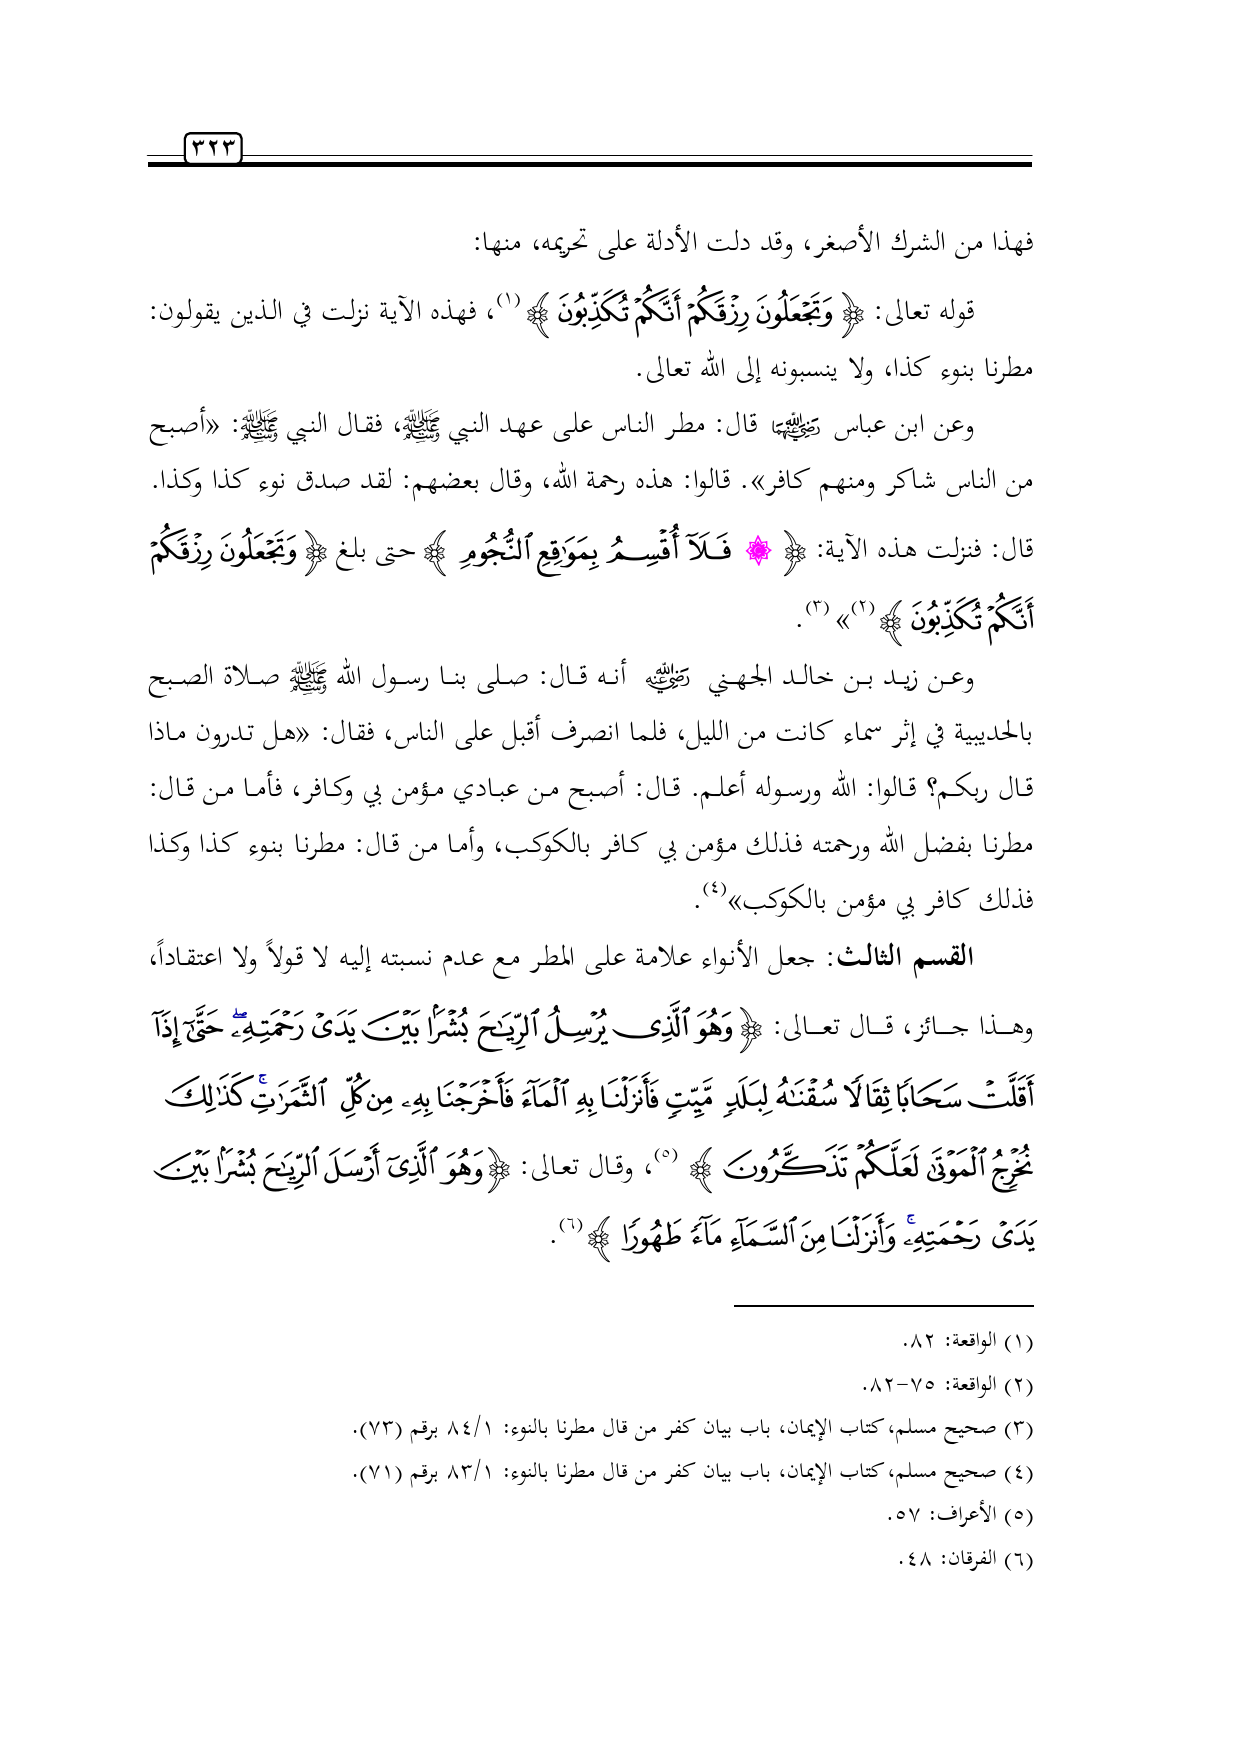 ٣٢٣
فهذا من الشرك الأصغر، وقد دلت الأدلة على تحريمه، منها:
قوله تعالى: ﴿ وَتَجْعَلُونَ رِزْقَكُمْ أَنَّكُمْ تُكَذِّبُونَ ﴾(١)، فهذه الآية نزلت في الذين يقولون:
مطرنا بنوء كذا، ولا ينسبونه إلى الله تعالى.
وعن ابن عباس رضي الله عنهما قال: مطر الناس على عهد النبي ﷺ، فقال النبي ﷺ: «أصبح
من الناس شاكر ومنهم كافر». قالوا: هذه رحمة الله، وقال بعضهم: لقد صدق نوء كذا وكذا.
قال: فنزلت هذه الآية: ﴿ ۞ فَلَآ أُقْسِمُ بِمَوَٰقِعِ ٱلنُّجُومِ ﴾ حتى بلغ ﴿ وَتَجْعَلُونَ رِزْقَكُمْ
أَنَّكُمْ تُكَذِّبُونَ ﴾(٢)»(٣).
وعن زيد بن خالد الجهني رضي الله عنه أنه قال: صلى بنا رسول الله ﷺ صلاة الصبح
بالحديبية في إثر سماء كانت من الليل، فلما انصرف أقبل على الناس، فقال: «هل تدرون ماذا
قال ربكم؟ قالوا: الله ورسوله أعلم. قال: أصبح من عبادي مؤمن بي وكافر، فأما من قال:
مطرنا بفضل الله ورحمته فذلك مؤمن بي كافر بالكوكب، وأما من قال: مطرنا بنوء كذا وكذا
فذلك كافر بي مؤمن بالكوكب»(٤).
القسم الثالث: جعل الأنواء علامة على المطر مع عدم نسبته إليه لا قولاً ولا اعتقاداً،
وهذا جائز، قال تعالى: ﴿ وَهُوَ ٱلَّذِى يُرْسِلُ ٱلرِّيَـٰحَ بُشْرًۢا بَيْنَ يَدَىْ رَحْمَتِهِۦ ۖ حَتَّىٰٓ إِذَآ
أَقَلَّتْ سَحَابًا ثِقَالًا سُقْنَـٰهُ لِبَلَدٍ مَّيِّتٍ فَأَنزَلْنَا بِهِ ٱلْمَآءَ فَأَخْرَجْنَا بِهِۦ مِن كُلِّ ٱلثَّمَرَٰتِ ۚ كَذَٰلِكَ
نُخْرِجُ ٱلْمَوْتَىٰ لَعَلَّكُمْ تَذَكَّرُونَ ﴾(٥)، وقال تعالى: ﴿ وَهُوَ ٱلَّذِىٓ أَرْسَلَ ٱلرِّيَـٰحَ بُشْرًۢا بَيْنَ
يَدَىْ رَحْمَتِهِۦ ۚ وَأَنزَلْنَا مِنَ ٱلسَّمَآءِ مَآءً طَهُورًا ﴾(٦).
(١) الواقعة: ٨٢.
(٢) الواقعة: ٧٥-٨٢.
(٣) صحيح مسلم، كتاب الإيمان، باب بيان كفر من قال مطرنا بالنوء: ٨٤/١ برقم (٧٣).
(٤) صحيح مسلم، كتاب الإيمان، باب بيان كفر من قال مطرنا بالنوء: ٨٣/١ برقم (٧١).
(٥) الأعراف: ٥٧.
(٦) الفرقان: ٤٨.